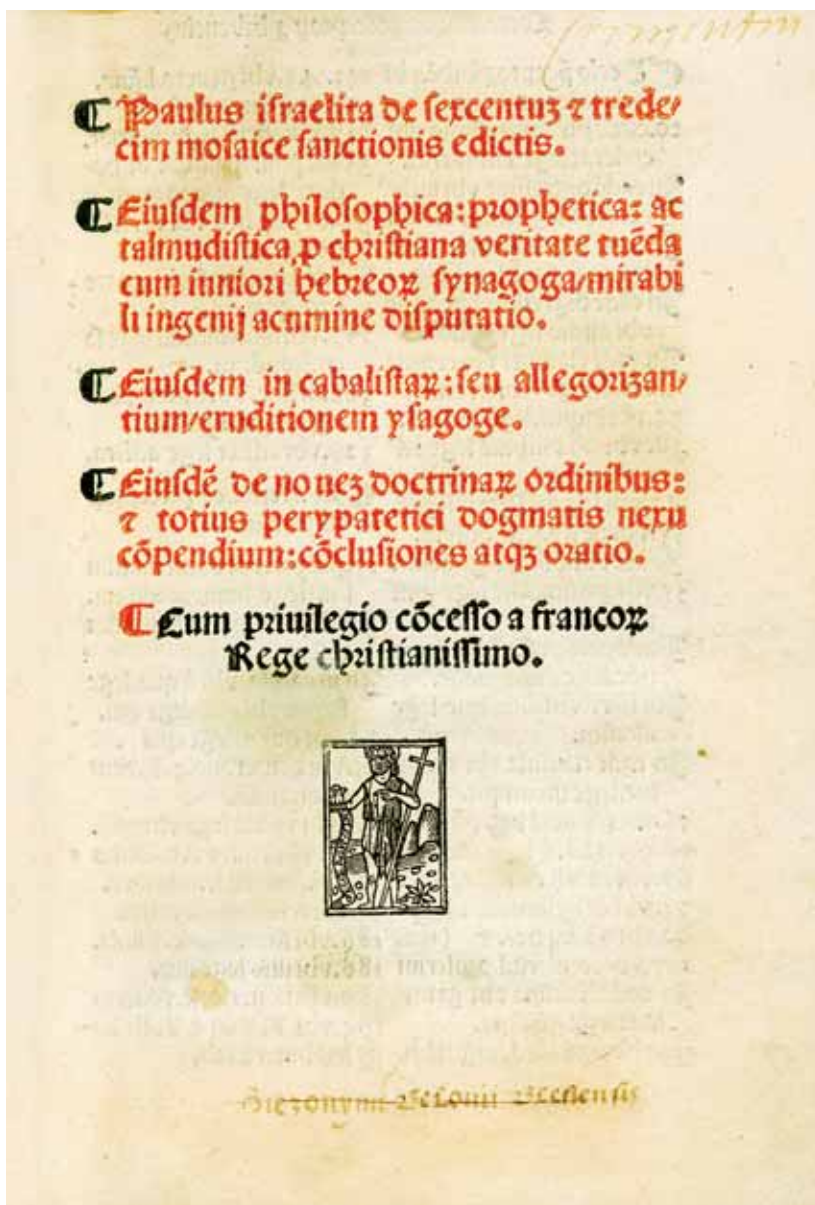 ¶ Paulus iſraelita de ſexcentuʒ ⁊ trede/
cim moſaice ſanctionis edictis.
¶ Eiuſdem philoſophica: prophetica: ac
talmudiſtica ꝓ chriſtiana veritate tuẽda
cum iuniori hebreoꝝ ſynagoga/mirabi
li ingenij acumine diſputatio.
¶ Eiuſdem in cabaliſtaꝝ: ſeu allegorizan/
tium/eruditionem yſagoge.
¶ Eiuſdẽ de noueʒ doctrinaꝝ ordinibus:
⁊ totius perypatetici dogmatis nexu
cõpendium: cõcluſiones atqʒ oratio.
¶ Cum priuilegio cõceſſo a francoꝝ
Rege chriſtianiſſimo.